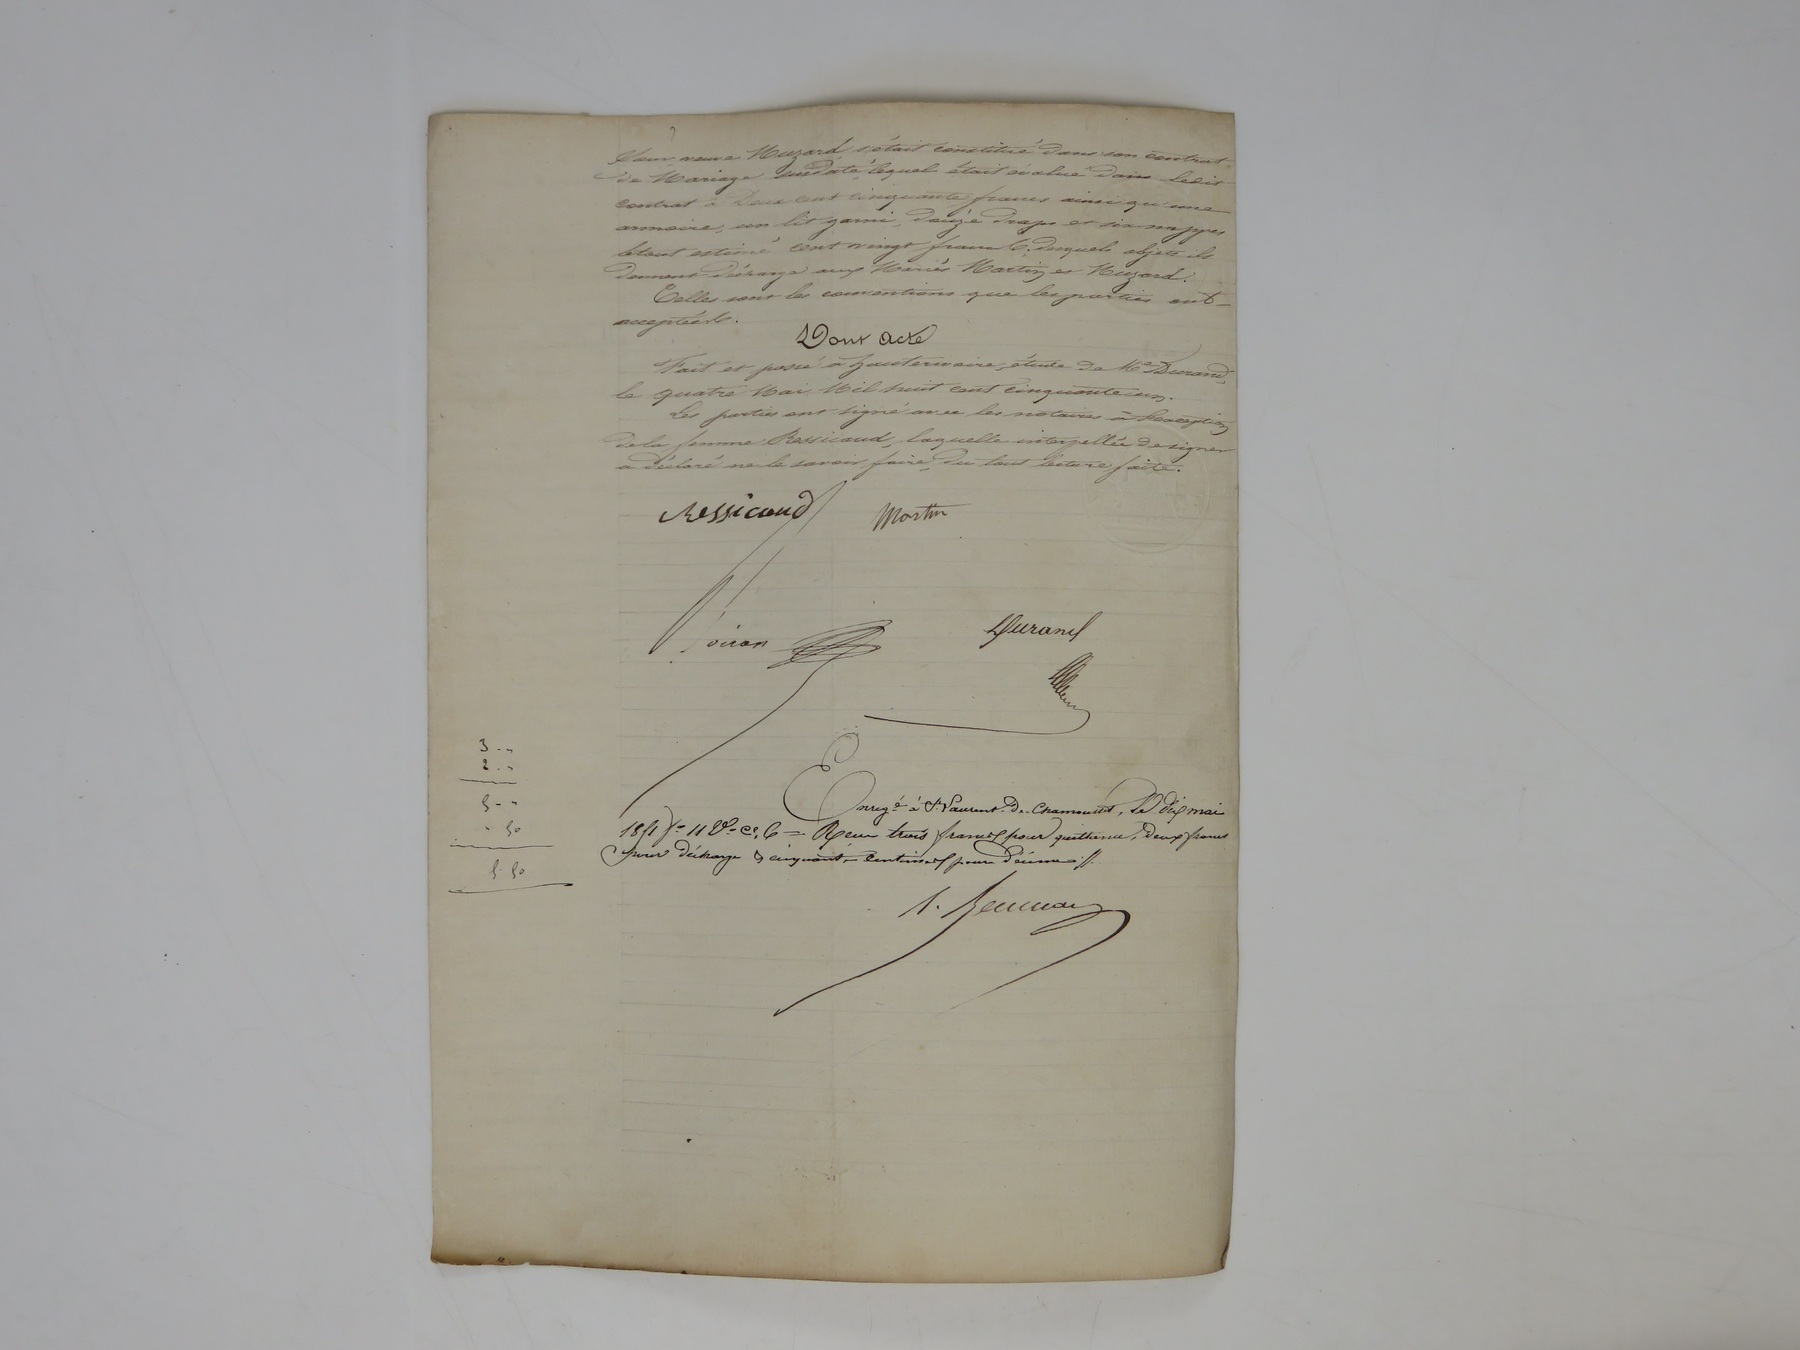 veuve Muzard s'était constitué dans son contrat
de Mariage susdaté lequel était évalué dans ledit
contrat à Deux cent cinquante francs ainsi qu'une
armoire, un lit garni, douze draps et six nappes
letout estimé cent vingt francs desquels objets ils
donnent décharge aux Mariés Martin et Muzard.
Telles sont les conventions que les parties ont
acceptées.
Dont Acte
Fait et passé à hauterivoire, étude de Me Durand,
le quatre Mai Mil huit cent cinquante un.
Les parties ont signé avec les notaires à l'exception
de la femme Ressicaud, laquelle interpellée de signer
a déclaré ne le savoir faire, du tout lecture faite.
Ressicaud Martin
Durand
3 . "
2 . "
5 - "
" 50
5 50
Enregé à St Laurent-de-Chamousset, le dix mai
1851 fo 11 Vo ce 6 = Reçu trois francs pour quittance, deux francs
pour décharge & cinquante centimes pour décime